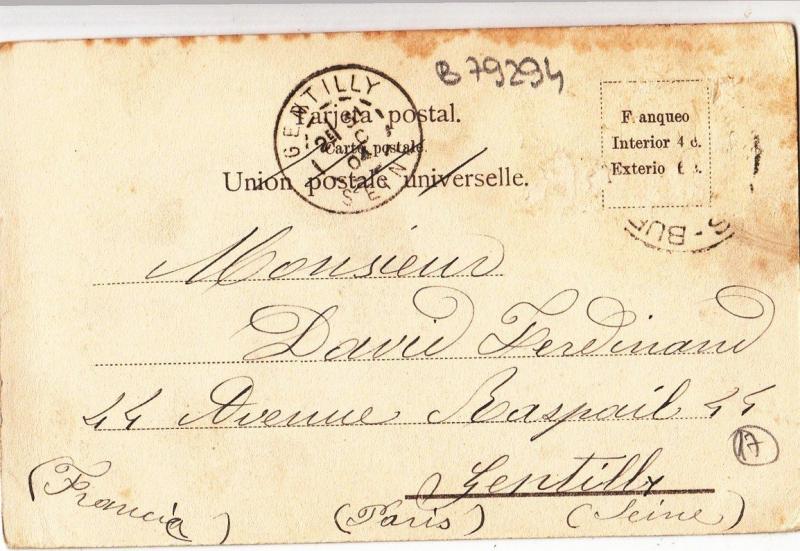 B 79294
GENTILLY
SEINE
Tarjeta postal.
Carte postale.
Union postale universelle.
F.anqueo
Interior 4 c.
Exterio 6 c.
S - BUE
Monsieur
David Ferdinand
44 Avenue Raspail 44
Gentilly
17
(Francia) (Paris) (Seine)